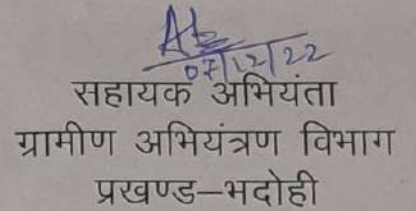 07/12/22
सहायक अभियंता
ग्रामीण अभियंत्रण विभाग
प्रखण्ड–भदोही